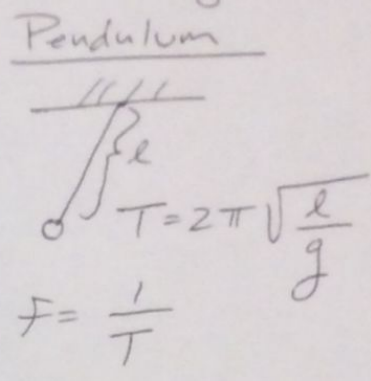 Pendulum
l
T = 2π √(l/g)
F = 1/T